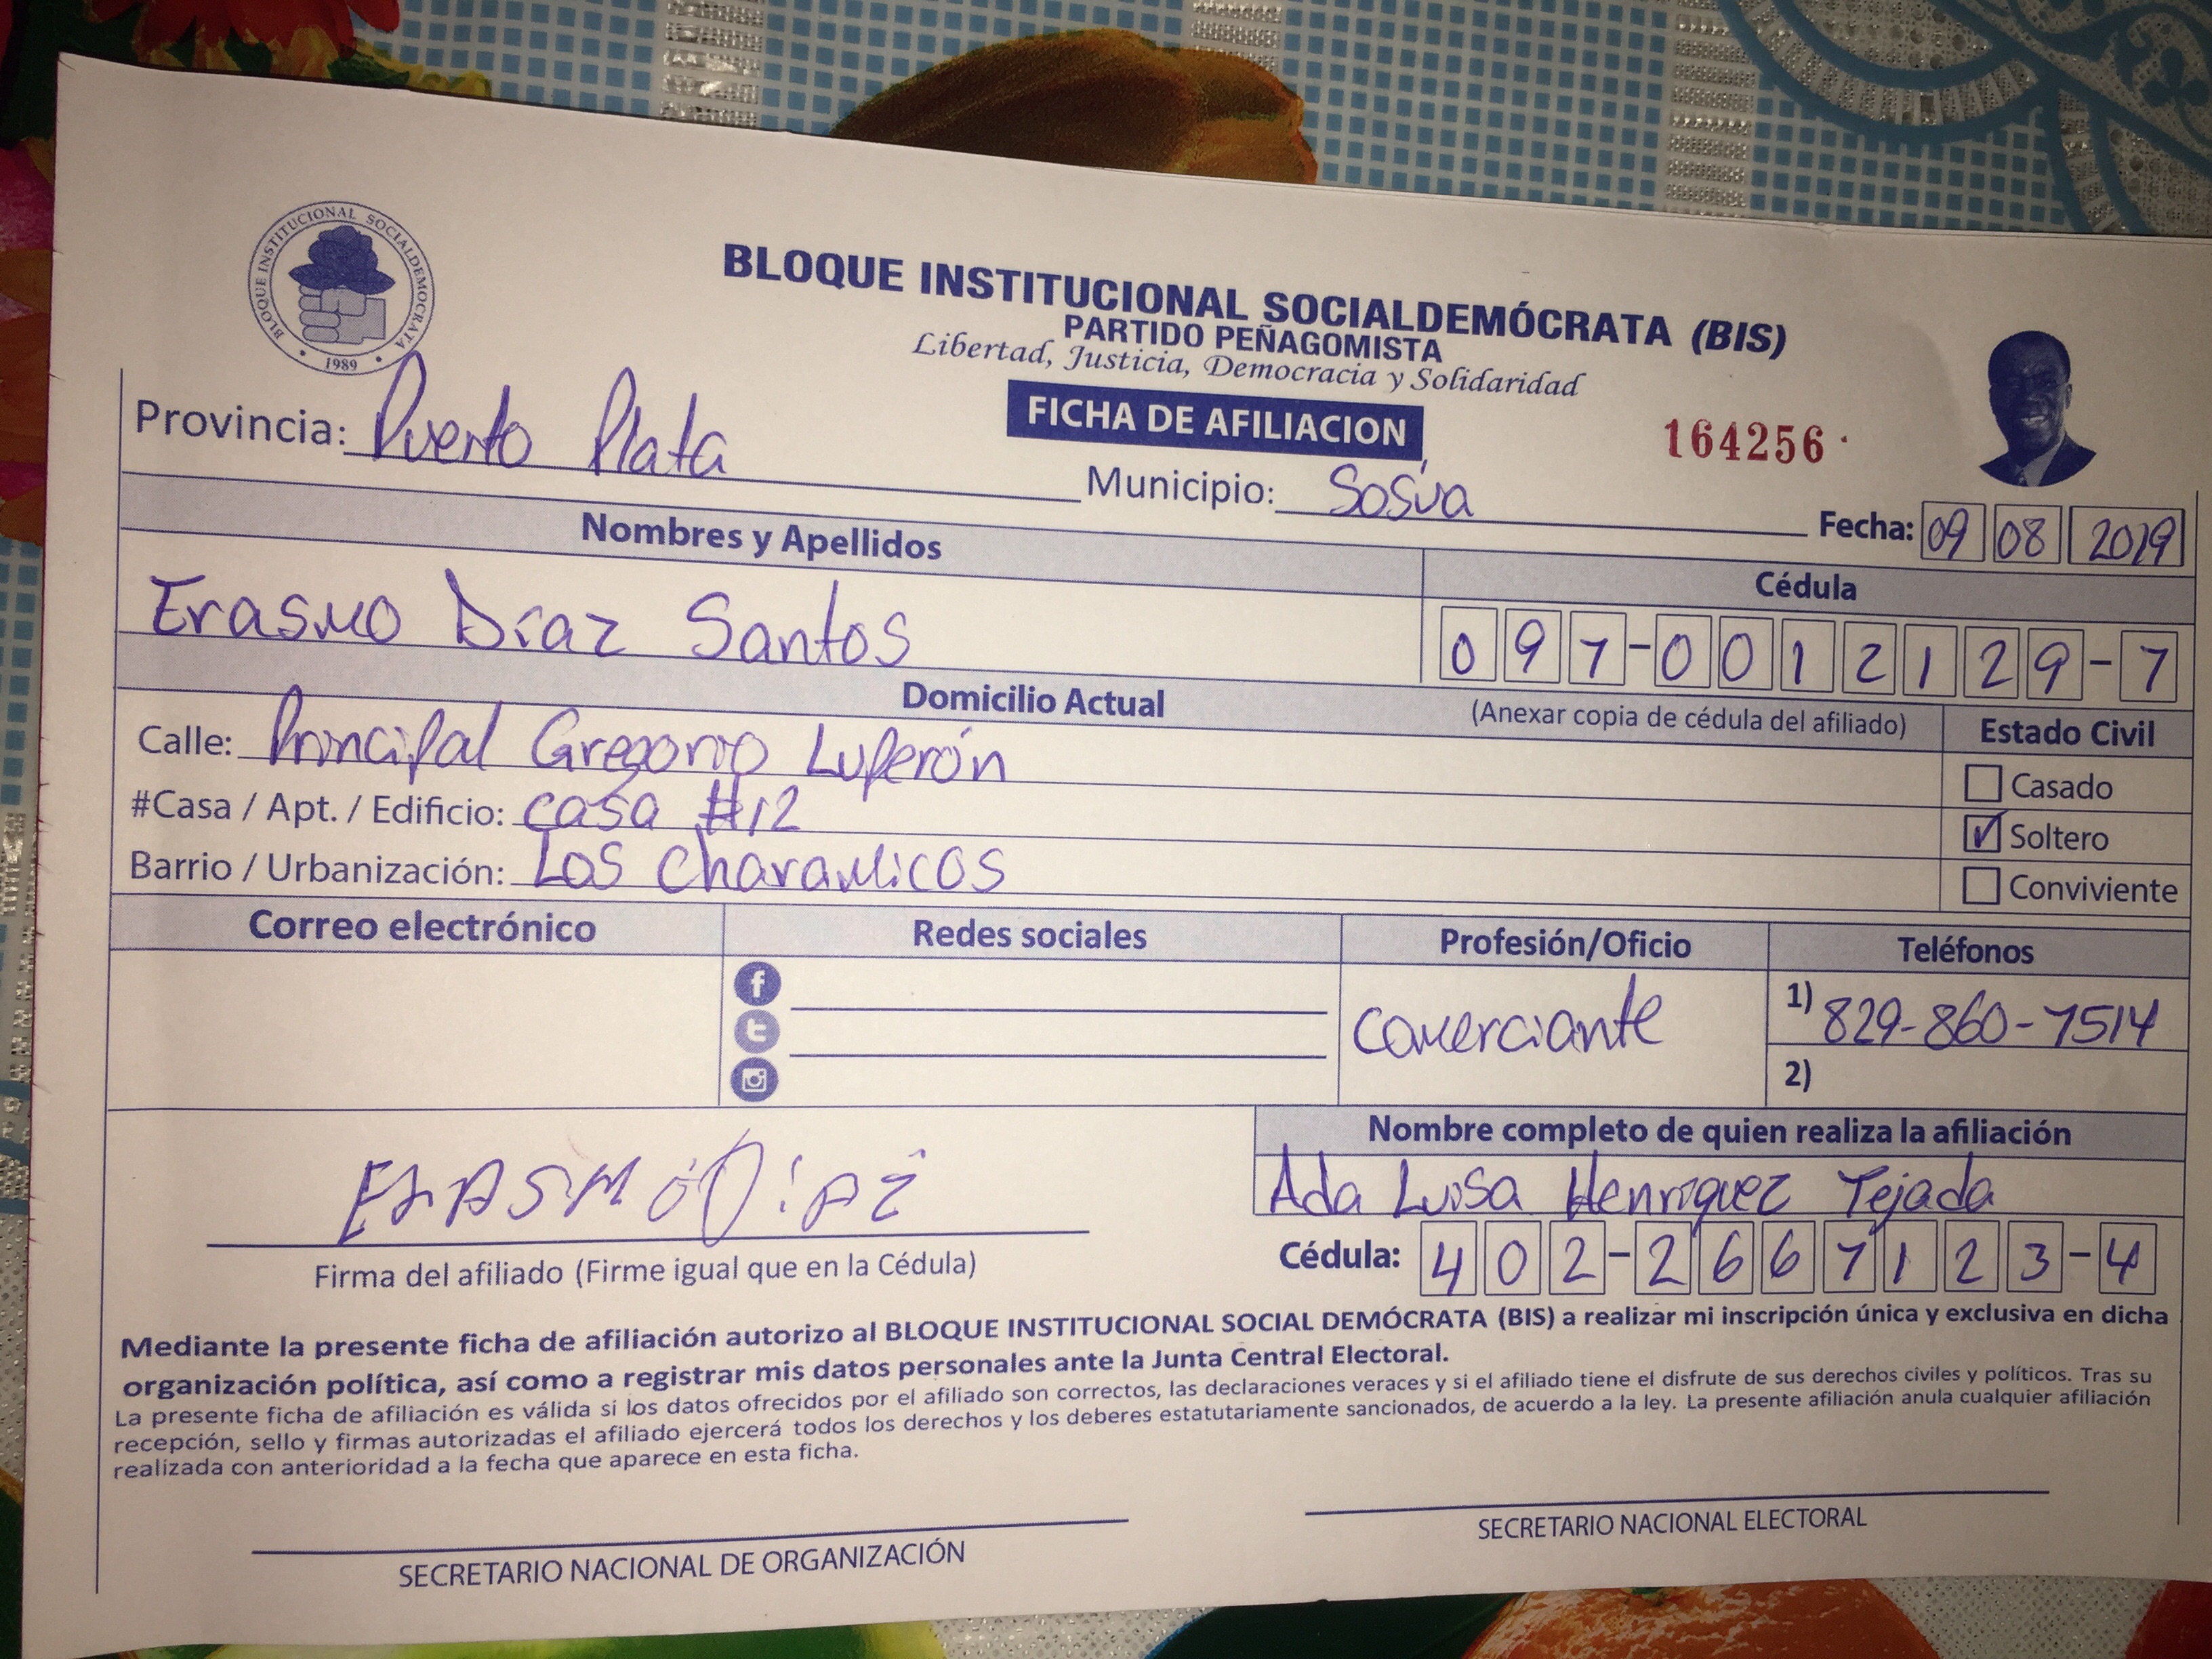 BLOQUE INSTITUCIONAL SOCIALDEMOCRATA
1989
BLOQUE INSTITUCIONAL SOCIALDEMÓCRATA (BIS)
PARTIDO PEÑAGOMISTA
Libertad, Justicia, Democracia y Solidaridad
FICHA DE AFILIACION
164256
Provincia: Puerto Plata Municipio: Sosúa Fecha: 09 08 2019
Nombres y Apellidos Cédula
Erasmo Díaz Santos 097-0012129-7
Domicilio Actual (Anexar copia de cédula del afiliado) Estado Civil
Calle: Principal Gregorio Luperón
Casado
#Casa / Apt. / Edificio: casa #12
Soltero
Barrio / Urbanización: Los Charamicos
Conviviente
Correo electrónico Redes sociales Profesión/Oficio Teléfonos
comerciante 1) 829-860-7514
2)
Nombre completo de quien realiza la afiliación
ERASMO DíAZ Ada Luisa Henriquez Tejada
Firma del afiliado (Firme igual que en la Cédula) Cédula: 402-2667123-4
Mediante la presente ficha de afiliación autorizo al BLOQUE INSTITUCIONAL SOCIAL DEMÓCRATA (BIS) a realizar mi inscripción única y exclusiva en dicha
organización política, así como a registrar mis datos personales ante la Junta Central Electoral.
La presente ficha de afiliación es válida si los datos ofrecidos por el afiliado son correctos, las declaraciones veraces y si el afiliado tiene el disfrute de sus derechos civiles y políticos. Tras su
recepción, sello y firmas autorizadas el afiliado ejercerá todos los derechos y los deberes estatutariamente sancionados, de acuerdo a la ley. La presente afiliación anula cualquier afiliación
realizada con anterioridad a la fecha que aparece en esta ficha.
SECRETARIO NACIONAL DE ORGANIZACIÓN SECRETARIO NACIONAL ELECTORAL